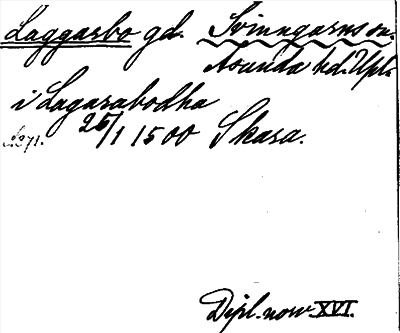 Laggarbo gd. Svinngarns sn.
Asunda hd. Upl.
i Lagarabodha
25/1 1500 Skara.
Dipl. norv. XVI.